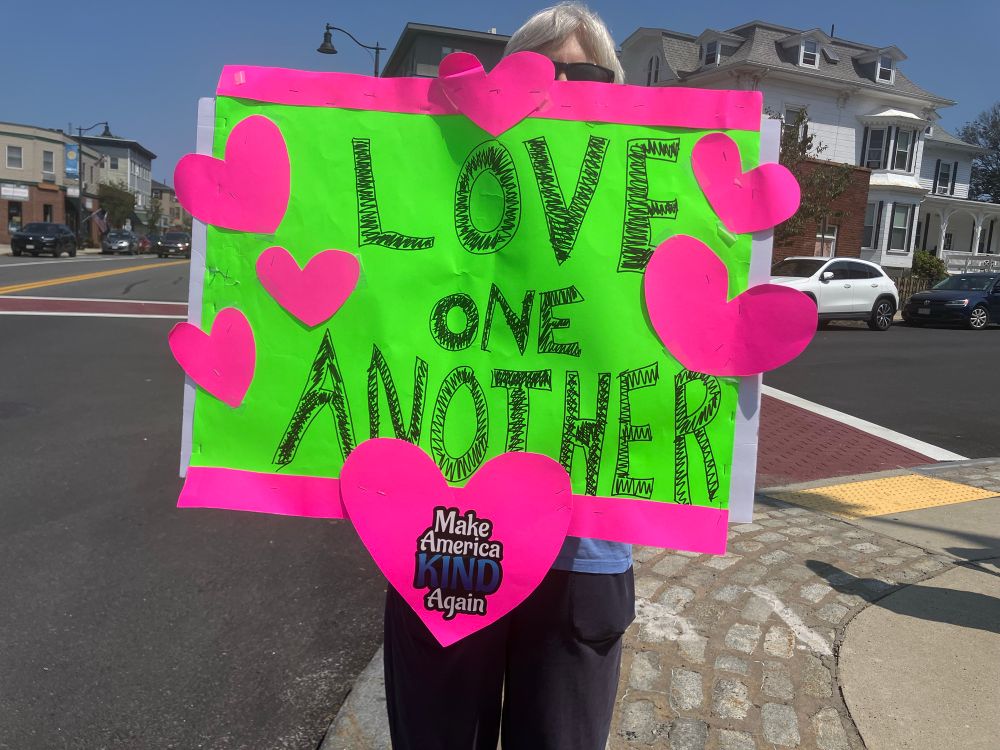 LOVE
ONE
ANOTHER
Make
America
KIND
Again